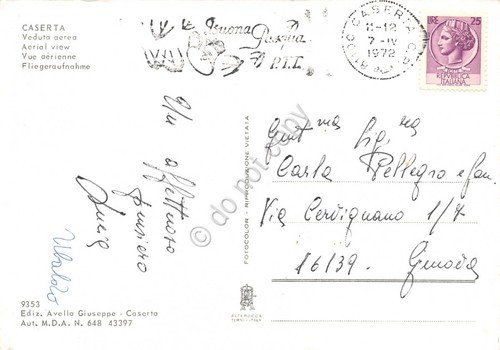 CASERTA
Veduta aerea
Aerial view
Vue aérienne
Fliegeraufnahme
Buona
Pasqua
P.T.T.
CASERTA
11-12
7-IV
1972
LIRE 25
REPUBBLICA
ITALIANA
Un affettuoso
pensiero
Lucia
Ubaldo
Gent.ma Sig.ra
Carla Pellegro e fam.
Via Cervignano 1/7
16139. Genova
FOTOCOLOR - RIPRODUZIONE VIETATA
do not copy
9353
Ediz. Avella Giuseppe - Caserta
Aut. M.D.A. N. 648 43397
ALTEROCCA
TERNI